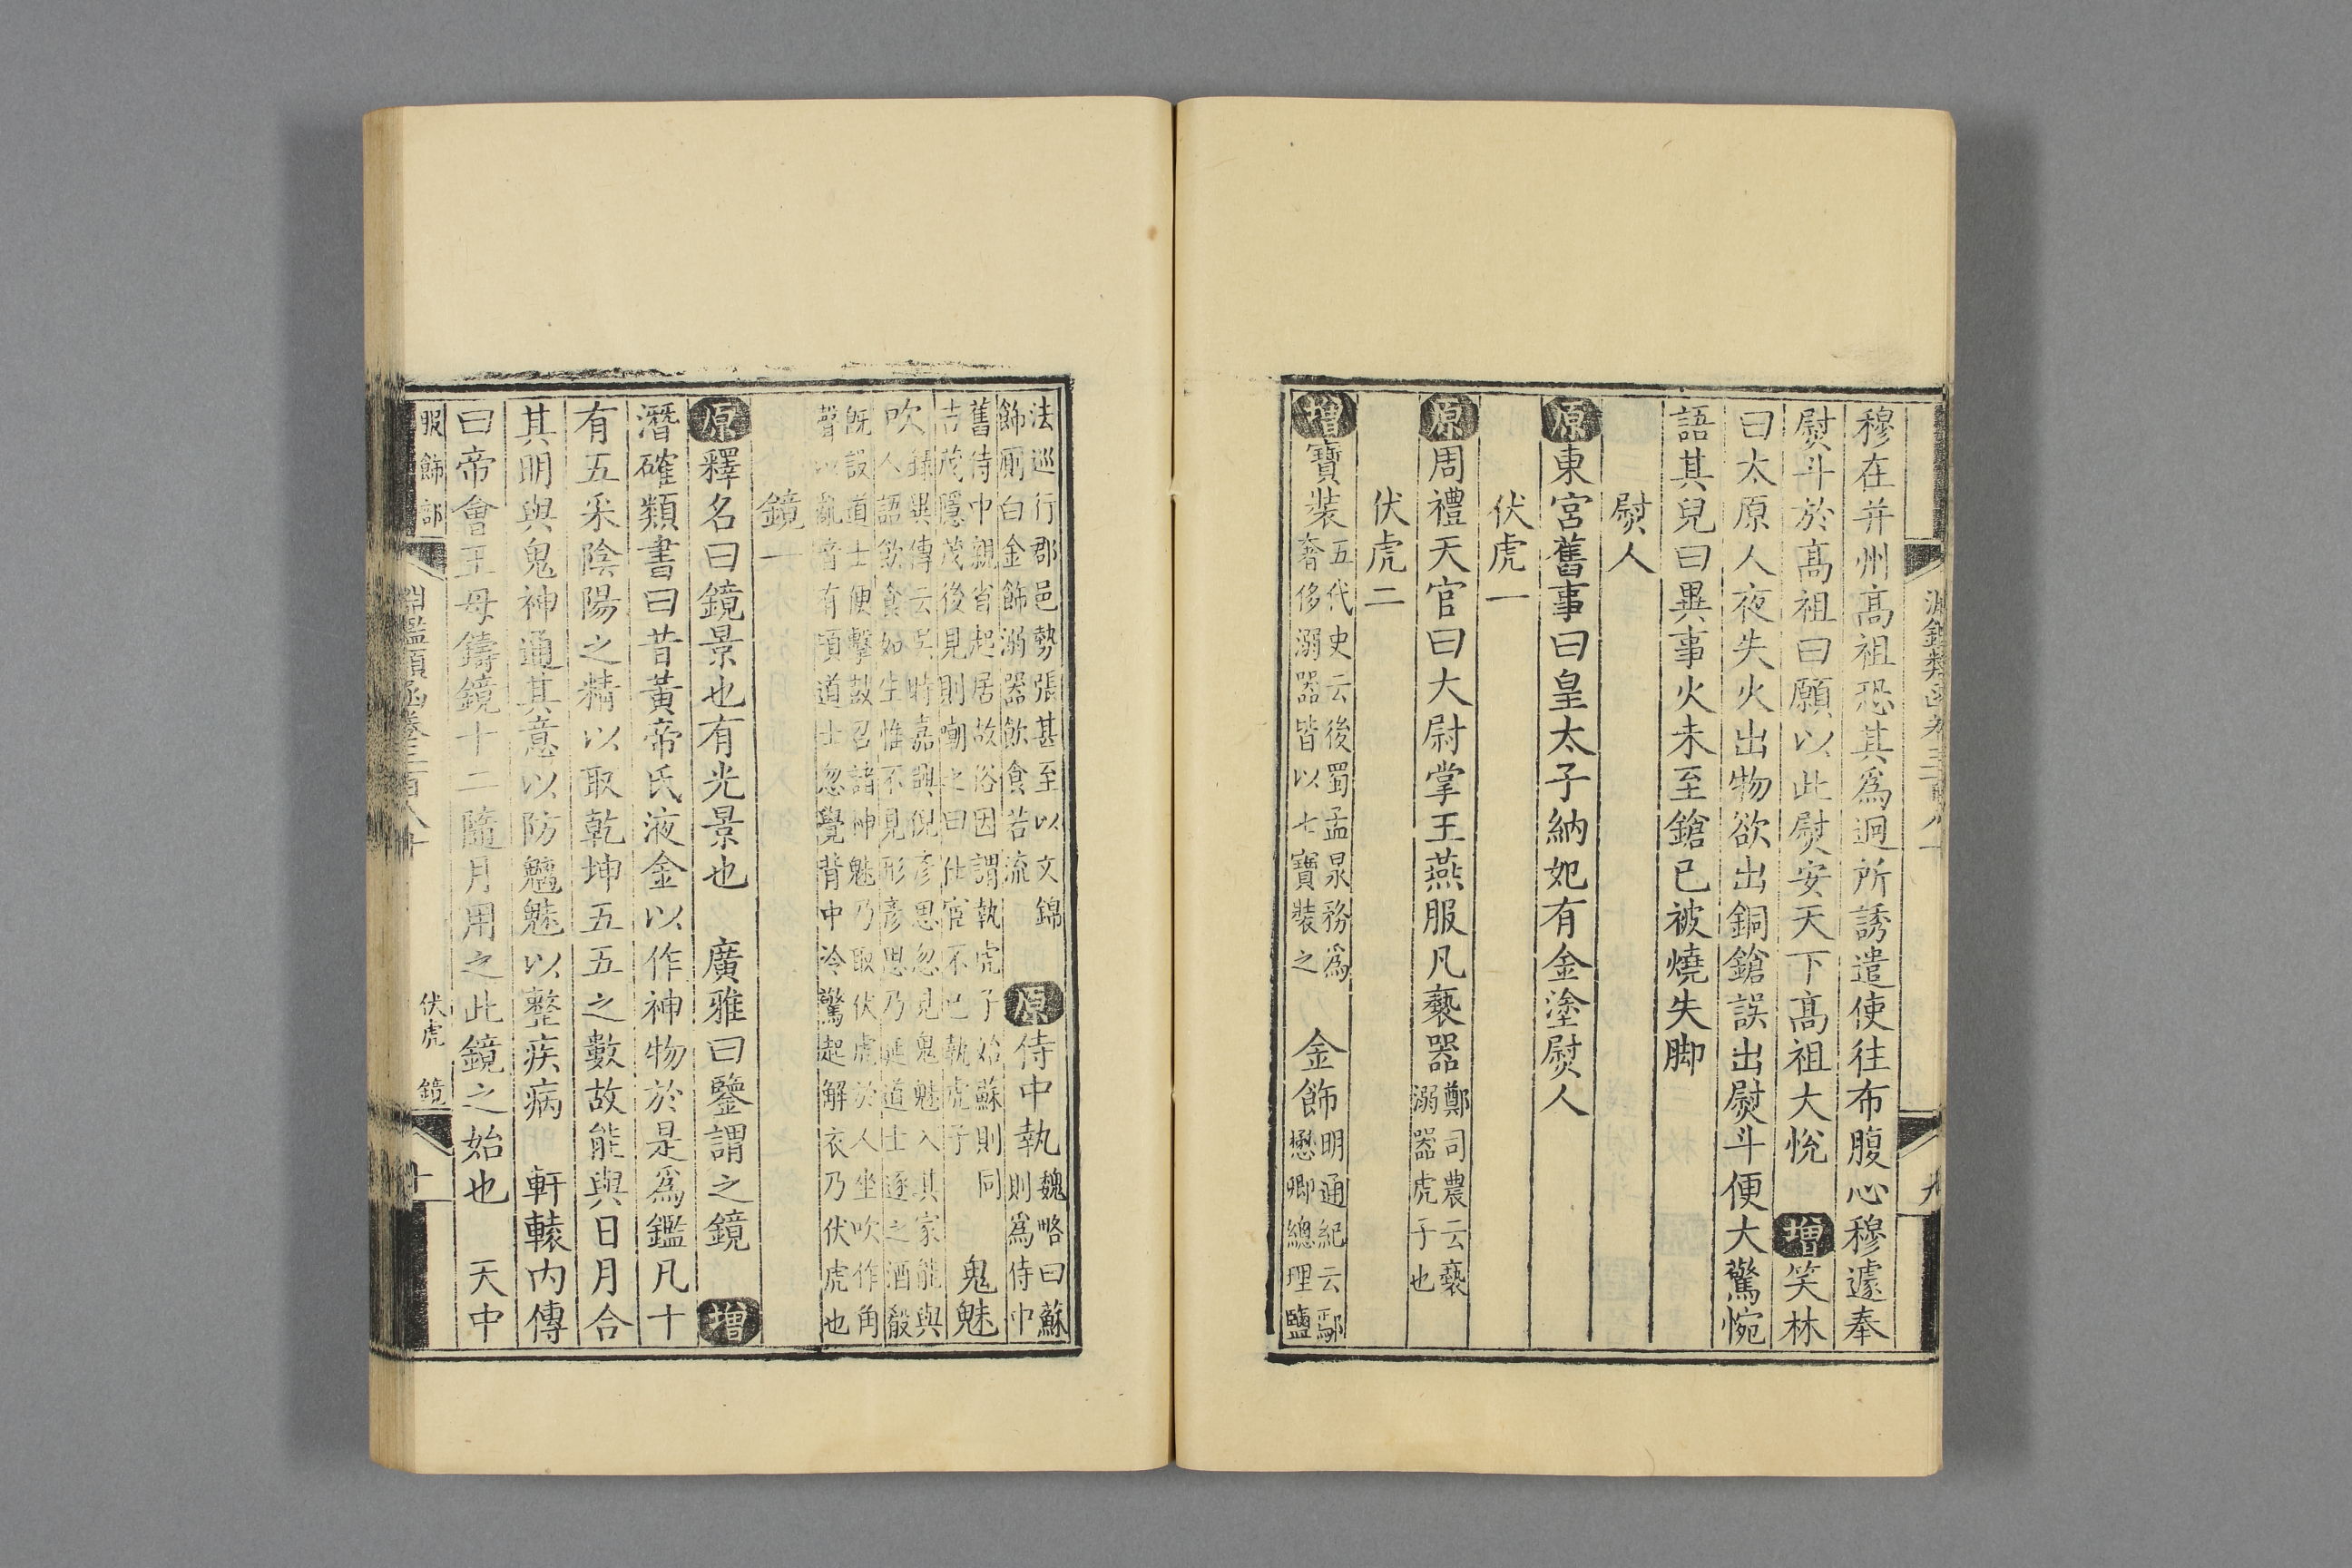 淵鑑類函卷三百八十
九
穆在并州高祖恐其爲迥所誘遣使往布腹心穆遽奉
熨斗於高祖曰願以此熨安天下高祖大悅 增笑林
曰太原人夜失火出物欲出銅鎗誤出熨斗便大驚惋
語其兒曰異事火未至鎗已被燒失脚
熨人
原東宮舊事曰皇太子納妃有金塗熨人
伏虎一
原周禮天官曰大尉掌王燕服凡褻器鄭司農云褻
溺器虎子也
伏虎二
增寶裝五代史云後蜀孟泉務爲
奢侈溺器皆以七寶裝之 金飾明通紀云鄢
懋卿總理鹽
法巡行郡邑勢張甚至以文錦
飾厠白金飾溺器飲食若流 原侍中執魏略曰蘇
則爲侍中
舊侍中親省起居故俗因謂執虎子始蘇則同
吉茂隱茂後見則嘲之曰仕宦不已執虎子 鬼魅
吹錄異傳云吳時嘉興倪彥思忽見鬼魅入其家能與
人語飲食如生惟不見形彥思乃延道士逐之酒殽
旣設道士便擊鼓召諸神魅乃取伏虎於人坐吹作角
聲以亂音有頃道士忽覺背中冷驚起解衣乃伏虎也
鏡一
原釋名曰鏡景也有光景也 廣雅曰鑒謂之鏡 增
潛確類書曰昔黃帝氏液金以作神物於是爲鑑凡十
有五采陰陽之精以取乾坤五五之數故能與日月合
其明與鬼神通其意以防魑魅以整疾病 軒轅內傳
曰帝會王母鑄鏡十二隨月用之此鏡之始也 天中
服飾部
淵鑑類函卷三百八十
伏虎 鏡
十